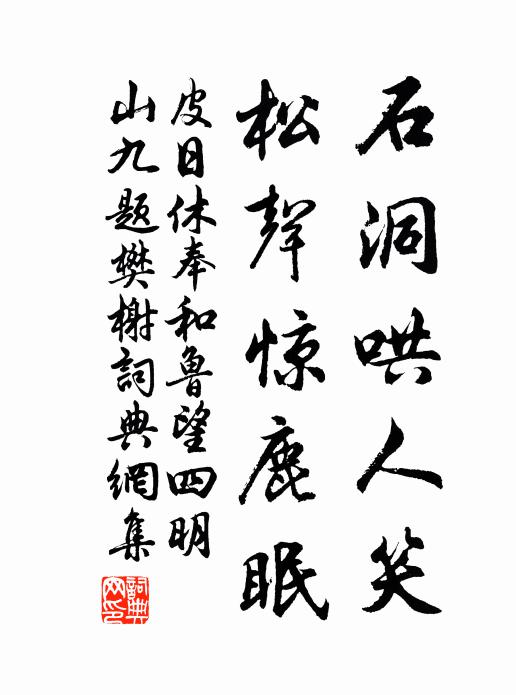 石洞哄人笑
松聲惊鹿眠
皮日休奉和鲁望四明
山九题樊榭詞典網集
詞典网印